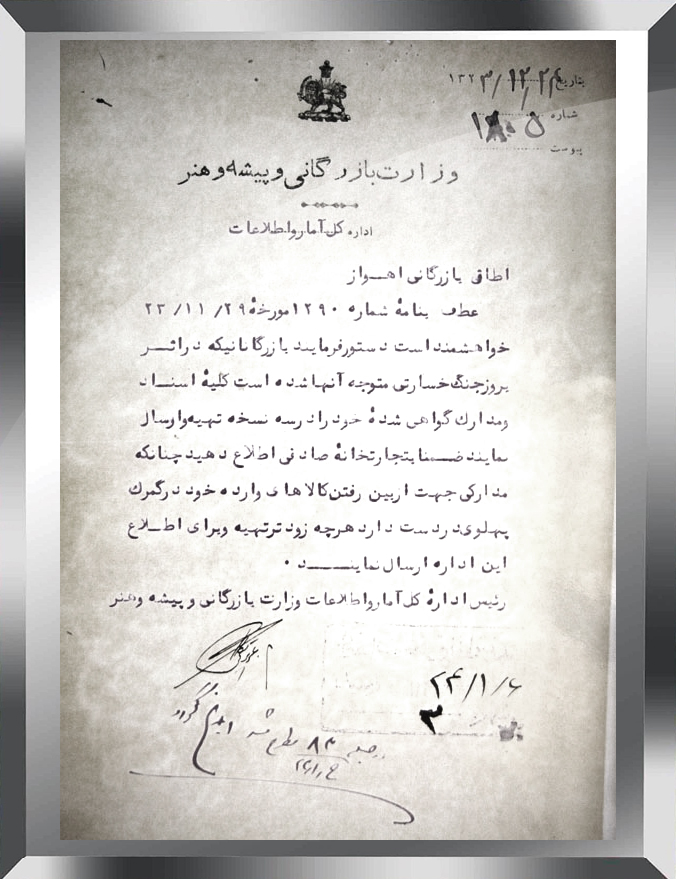 بتاریخ ۲۴/۱۲/۱۳۲۳
شماره
پیوست
وزارت بازرگانی و پیشه و هنر
اداره کل آمار و اطلاعات
اطاق بازرگانی اهواز
عطف بنامهٔ شماره ۱۲۹۰ مورخهٔ ۲۹/ ۱۱/ ۲۳
خواهشمند است دستور فرمایند بازرگانانیکه در اثر
بروز جنگ خسارتی متوجه آنها شده است کلیهٔ اسناد
و مدارك گواهی شدهٔ خود را در سه نسخه تهیه و ارسال
نمایند ضمنا بتجارتخانهٔ صادقی اطلاع دهید چنانکه
مدارکی جهت از بین رفتن کالاهای وارده خود در گمرك
پهلوی در دست دارد هرچه زودتر تهیه و برای اطلاع
این اداره ارسال نمایند ۰
رئیس ادارهٔ کل آمار و اطلاعات وزارت بازرگانی و پیشه و هنر
۲۴/۱/۶
۳
جلسه ۸۳ مطرح شد